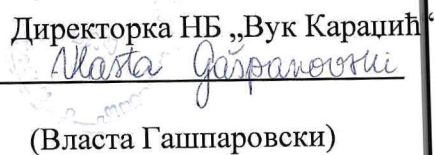 Директорка НБ „Вук Караџић“
Vlasta Gašparovski
(Власта Гашпаровски)